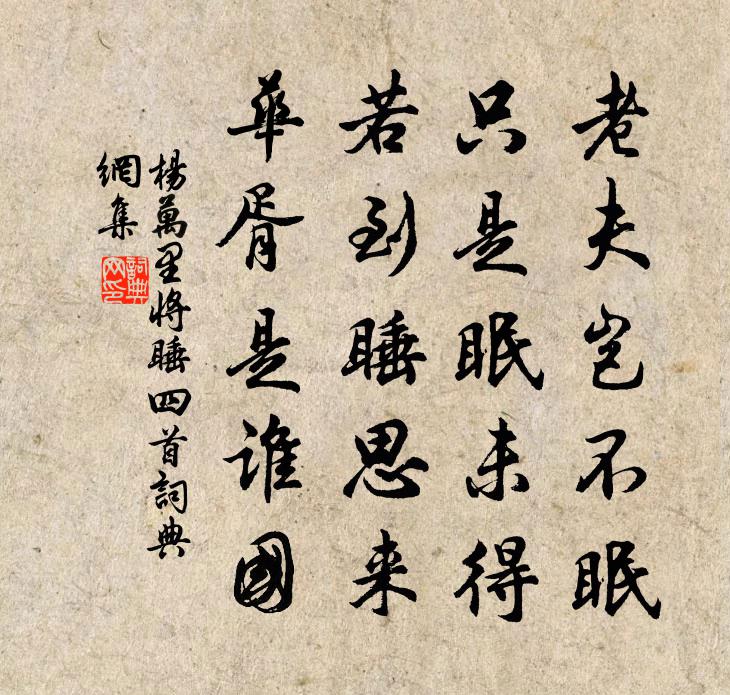 老夫岂不眠
只是眠未得
若到睡思来
華胥是谁國
楊萬里将睡四首詞典
網集
詞典
网印